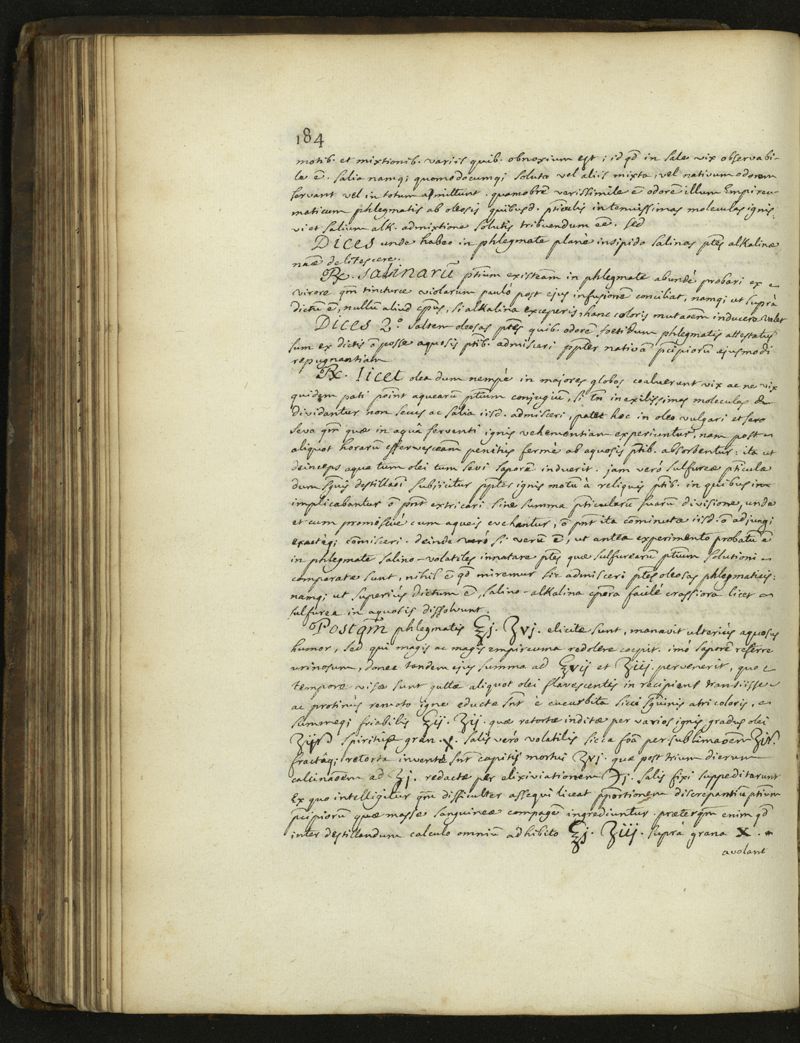 184
motib. et mixtionib. variis quib. obnoxium est; id qd in sale vix observabi-
le ē. salia namq; quomodocumq; soluta vel aliis mixta, vel nativum odorem
servant vel in totum amittunt. quamobrē varissimile ē odorē illum Empireu-
maticum phlegmatis ab oleosis quibusd. pticulis in tenuissimas moleculas ignis
vi et salium alk. admixtione solutis tribuendum eē. sed
Dices unde habeo in phlegmate planè insipido salinas ptēs alkalinæ
naæ delitescere.
℞. Salinarū ptium existeam in phlegmate abundè probari ex
virore qm̄ tincturæ violarum paulò post ejus infusionē conciliat, namq; ut suprà
dictū ē, nullū aliud cpus, si alkalina exceperis, hanc coloris mutaōem inducere valet
Dices 2.° saltem oleosas ptēs quib. odorē foetibum phlegmatis attestatus
sum ex dictis ō posse aquosis ptib. admisceri ppter nativā pcipiorū ejusmodi
repugnantiam
℞. licet olea dum nempè in majores globos coaluerunt vix ac ne vix
quidem pati point aquearum ptium conjugiū, si tn̄ in exilissimas moleculas
dividantur non secus ac salia iisd. admisceri, patet hoc in oleo vulgari et sero
sevo qm̄ quæ in aquâ ferventi ignis vehementiam experiuntur, nam post
aliquot horarū effervesceam penitus fermè ab aquosis ptib. absorbentur: ita ut
deinceps aqua tum olei tum sevi saporē induerit. jam verò sulfureæ pticulæ
dum sguis destillaōi subjicitur ppter ignis motū à reliquis ptib. in quibus
implicabantur ō pnt extricari sine summa pticularū suarū divisione, unde
et cum promiscuè cum aqueis evehantur, ō pnt ita cōminutæ iisd. ō adjungi
exactèq; cōmisceri. deinde verò si verū ē, ut antea experimento probatū ē
in phlegmate salino-volatiles innatare ptēs quæ sulfurearū ptium solutioni
comparatæ sunt, nihil ē qd miremur sic admisceri ptēs oleosas phlegmaticis:
namq; ut superiùs dictum ē, salino-alkalina cpora facilè crassiora licet
sulfurea in aquosis dissolvunt.
Postqm̄ phlegmatis ℥j. ʒvj. elicitæ sunt, manavit ulterius aquosus
humor, sed qui magis ac magis empireuma redolere coepit. imò saporē referre
urinosum, donec tandem ejus summa ad ʒvij et ʒiij. pervenerit, quo
tempore visæ sunt guttæ aliquot olei flavescentis in recipiens transiisse
ac protinùs remoto igne eductæ snt è cucurbita sicci sguinis atri coloris,
summeq; friabilis ℥ij. ʒij. quæ retortæ inditæ per varios ignis gradus olei
spiritus gran. x. salis verò volatilis sicca foā per sublimaōem
fractâq; retorta inventæ snt capitis mortui ʒvj. quæ post trium dierum
calcinaōem ad ʒj. redactæ per elixiviationem ℈j. salis fixi suppeditarunt
Ex quo intelligitur qm̄ difficulter assequi liceat pportionem discrepantium ptium
pcipiorū quæ massæ sanguineæ compagem ingrediuntur. præterqm̄ enim qd
inter destillandum calculo omniū adhibito ℥j. ʒiij. suprà grana X.
avolant